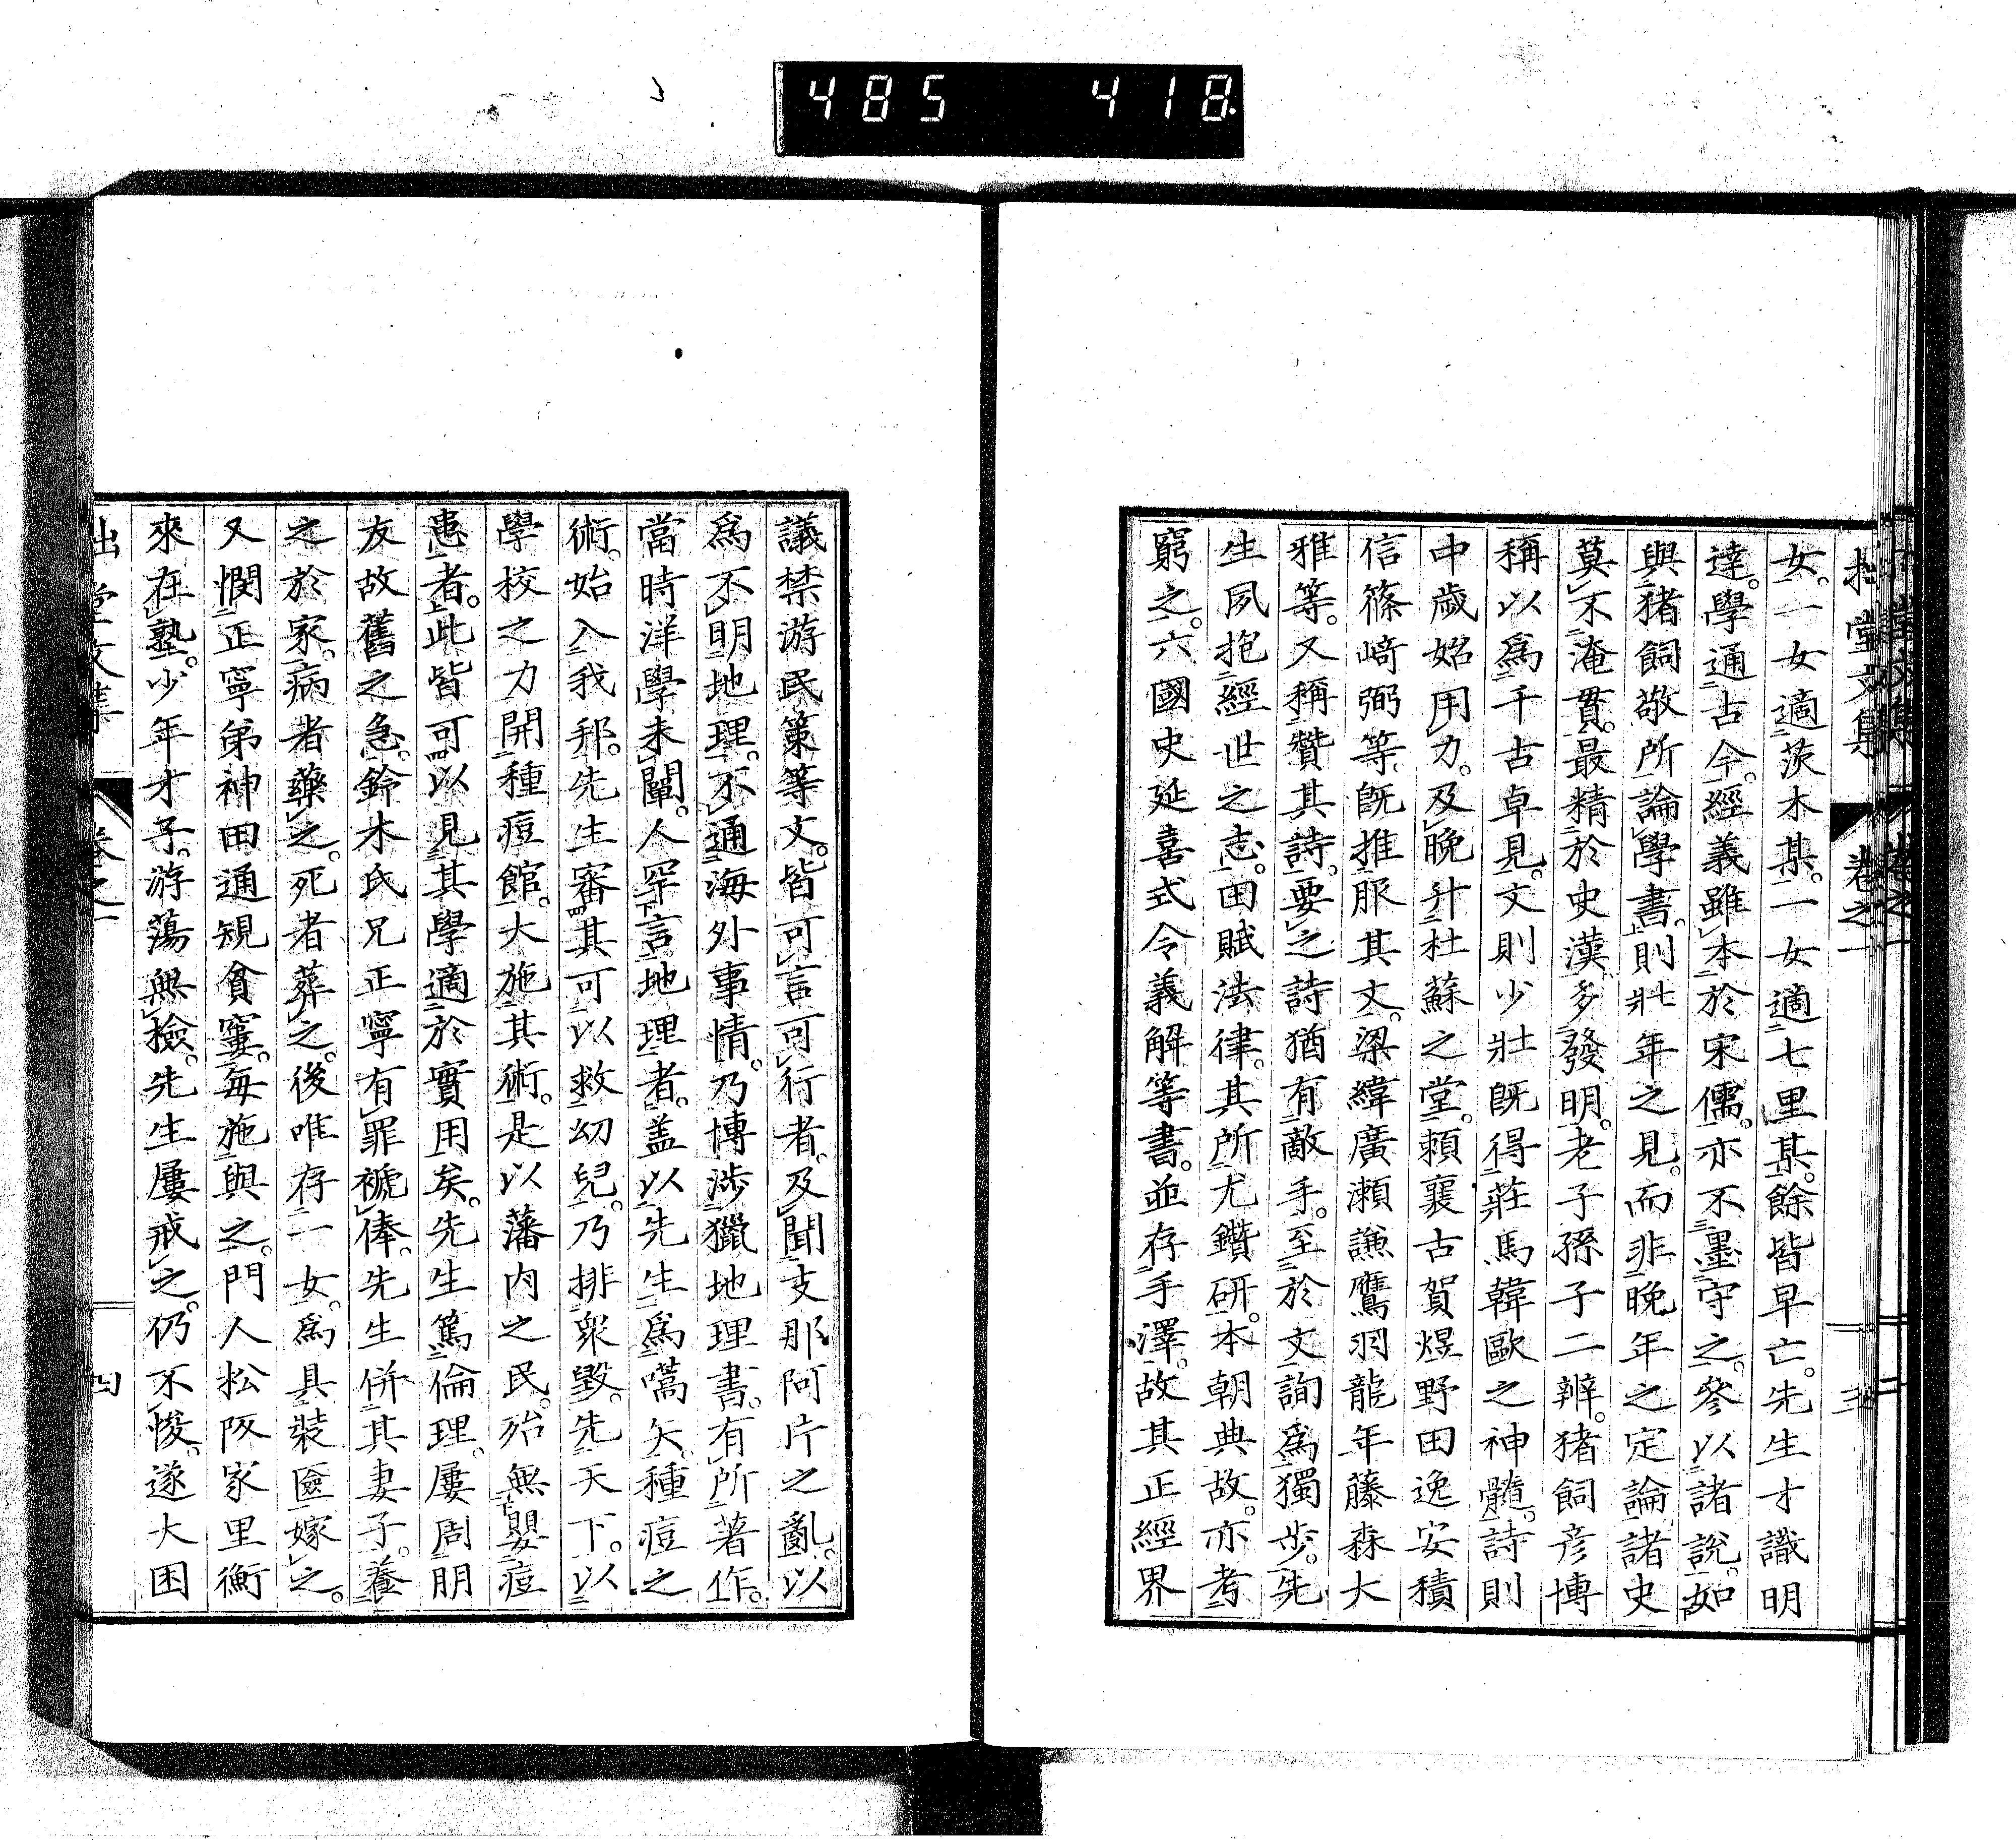 485 418
拙堂文集 卷之一 三
女。一女適茨木某。一女適七里某。餘皆早亡。先生才識明
達。學通古今。經義雖本於宋儒。亦不墨守之。參以諸說。如
與猪飼敬所論學書。則壯年之見。而非晚年之定論。諸史
莫不淹貫。最精於史漢。多發明。老子孫子二辨。猪飼彦博
稱以爲千古卓見。文則少壯既得莊馬韓歐之神髓。詩則
中歲始用力。及晚升杜蘇之堂。賴襄古賀煜野田逸安積
信篠﨑弼等。既推服其文。梁緯廣瀨謙鷹羽龍年藤森大
雅等。又稱贊其詩。要之詩猶有敵手。至於文詢爲獨步。先
生夙抱經世之志。田賦法律。其所尤鑽研。本朝典故。亦考
窮之。六國史延喜式令義解等書。並存手澤。故其正經界
議禁游民策等文。皆可言可行者。及聞支那阿片之亂。以
爲不明地理。不通海外事情。乃博涉獵地理書。有所著作。
當時洋學未闡。人罕言地理者。蓋以先生爲嚆矢。種痘之
術。始入我邦。先生審其可以救幼兒。乃排衆毀。先天下。以
學校之力開種痘館。大施其術。是以藩内之民。殆無嬰痘
患者。此皆可以見其學適於實用矣。先生篤倫理。屢周朋
友故舊之急。鈴木氏兄正寧有罪褫俸。先生併其妻子。養
之於家。病者藥之。死者葬之。後唯存一女。爲具裝匳嫁之。
又憫正寧弟神田通規貧窶。每施與之。門人松阪家里衡
來在塾。少年才子。游蕩無檢。先生屢戒之。仍不悛。遂大困
拙堂文集 卷之一 四